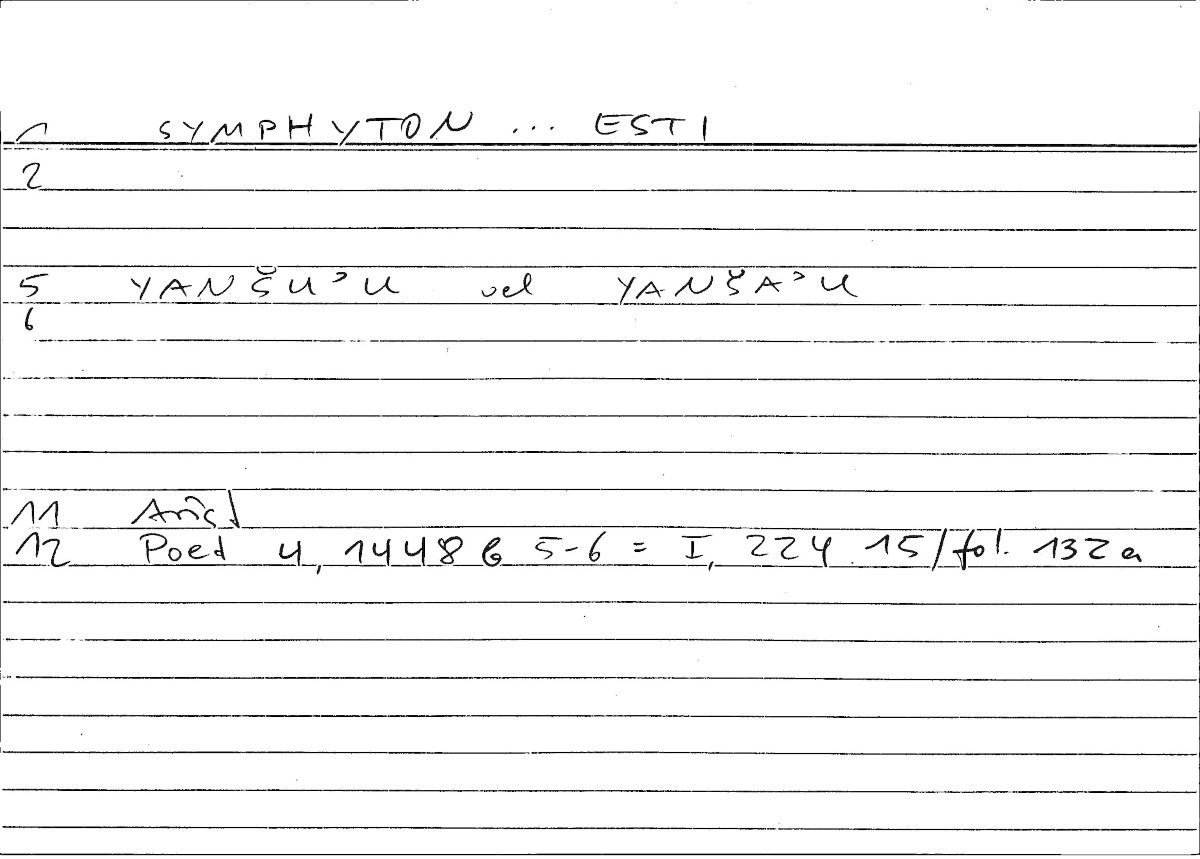 1 SYMPHYTON ... ESTI
2
5 YANŠUʾU vel YANŠAʾU
6
11 Arist
12 Poet 4, 1448 b 5-6 = I, 224 15/fol. 132a